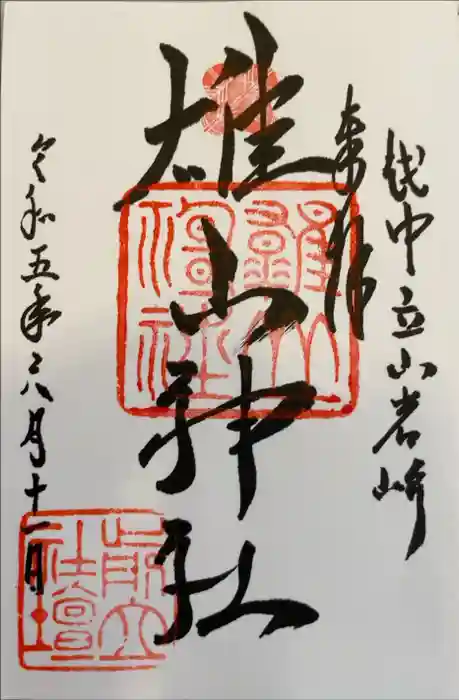 越中立山岩峅
奉拝
雄山神社
雄山神社
前立社壇
令和五年八月十一日